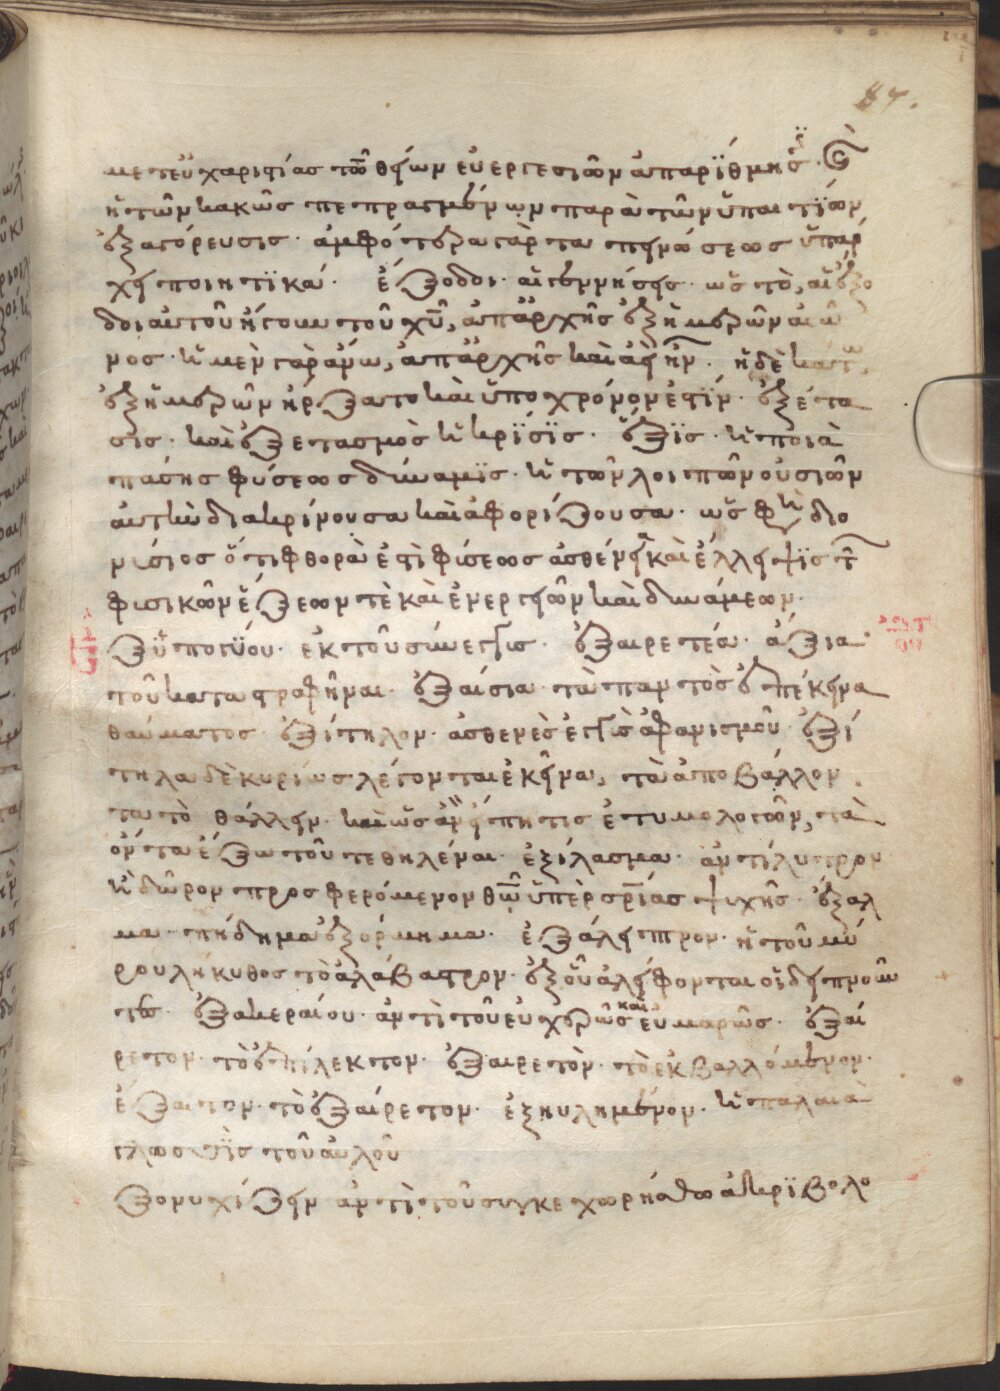 87.
μετ' εὐχαριστίας τῶν θείων εὐεργεσιῶν ἀπαρίθμησϊς·
ἢ τῶν κακῶς πεπραγμένων παρὰ τῶν ὑπαιτίων
ἐξαγόρευσις· ἀμφότερα γὰρ ταπεινώσεως ὑπάρ
χει ποιητϊκά· ἔξοδοι· αἱ γεννήσεις· ὡς τὸ, αἱ ἔξο
δοι αὐτοῦ ἤγουν τοῦ χῦ, ἀπ' ἀρχῆς ἐξ ἡμερῶν αἰῶ
νος· ἡ μὲν γὰρ ἄνω, ἀπ' ἀρχῆς καὶ ἀεὶ ἦν· ἡ δὲ κάτω,
ἐξ ἡμερῶν ἤρξατο καὶ ὑπὸ χρόνον ἐστίν· ἐξέτα
σις· καὶ ἐξετασμὸς ἡ κρϊσϊς· ἕξϊς· ἡ ποιὰ
πάσης φύσεως δύναμϊς· ἡ τῶν λοιπῶν οὐσιῶν
αὐτὴν διακρίνουσα καὶ ἀφορίζουσα· ὥς φη διο
νύσιος ὅτι φθορὰ ἐστὶ φύσεως ἀσθένεια καὶ ἔλλειψϊς τῶν
φυσικῶν ἕξεων τὲ καὶ ἐνεργειῶν καὶ δυνάμεων·
ἐξυπογύου· ἐκ τοῦ σύνεγγυς· ἐξαιρετέα· ἄξια
τοῦ καταγραφῆναι· ἐξαίσια· τὰ παντὸς ἐπέκεινα
θαύματος· ἐξίτηλον· ἀσθενὲς ἐγγὺς ἀφανισμοῦ· ἐξί
τηλα δὲ κυρίως λέγονται ἐκεῖνα, τὰ ἀποβάλλον
τα τὸ θάλλειν· καὶ ὡς ἂν εἴπῃ τις ἐτυμολογῶν, τὰ
ὄντα ἔξω τοῦ τεθηλέναι· ἐξίλασμα· ἀντίλυτρον
ἢ δῶρον προσφερόμενον θῶ ὑπὲρ σρίας ψυχῆς· ἔξαλ
μα· πήδημα ἐξόρμημα· ἐξάλειπτρον· ἡ τοῦ μύ
ρου λήκυθος τὸ ἀλάβαστρον· ἐξ οὗ ἀλείφονται οἱ δειπνοῦν
τες· ἐξακεραίου· ἀντὶ τοῦ εὐχερῶς καὶ εὐμαρῶς· ἐξαί
ρετον· τὸ ἐπίλεκτον· ἐξαιρετὸν· τὸ ἐκβαλλόμενον·
ἔξαιτον· τὸ ἐξαίρετον· ἐξηυλημένον· ἡ παλαιὰ
γλωσσὶς τοῦ αὐλοῦ
ἐξονυχίζειν ἀντὶ τοῦ συγκεχωρήσθω ἀκρϊβολο